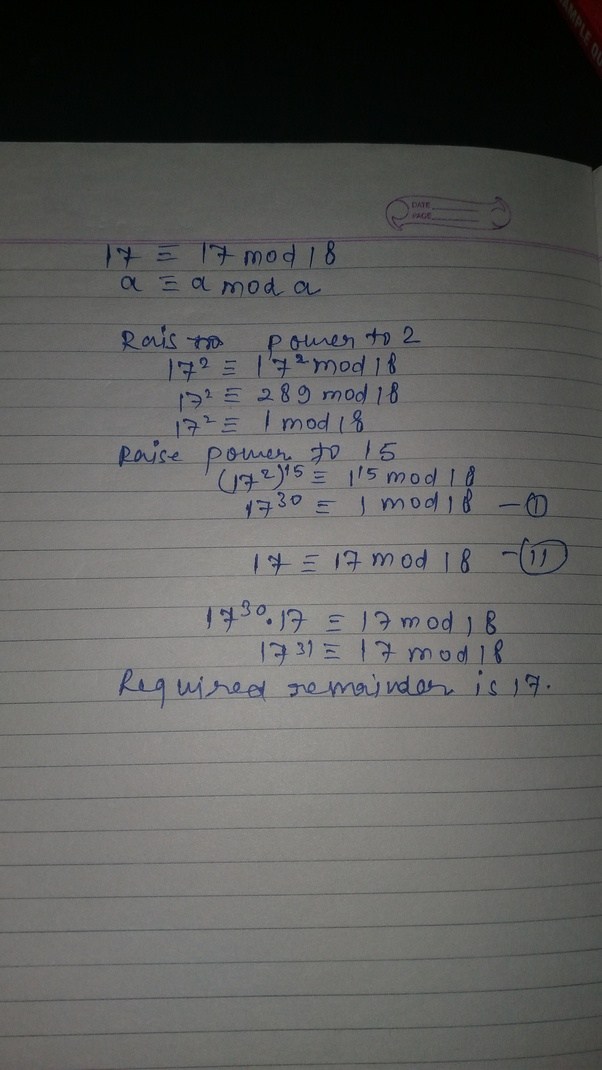 AMPLE QU
DATE
PAGE
17 ≡ 17 mod 18
a ≡ a mod a
Rais power to 2
17² ≡ 17² mod 18
17² ≡ 289 mod 18
17² ≡ 1 mod 18
Raise power to 15
(17²)¹⁵ ≡ 1¹⁵ mod 18
17³⁰ ≡ 1 mod 18 — ①
17 ≡ 17 mod 18 — ⑪
17³⁰·17 ≡ 17 mod 18
17³¹ ≡ 17 mod 18
Required remainder is 17.